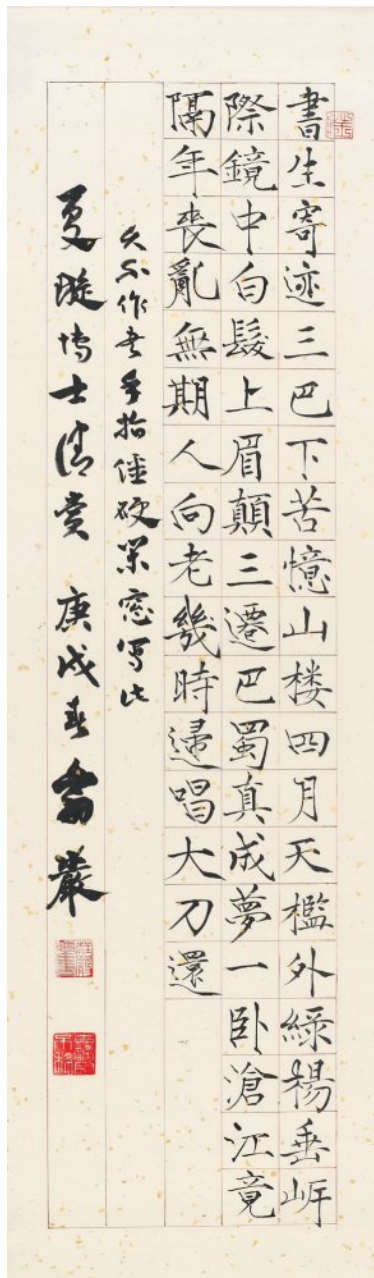 書生寄迹三巴下苦憶山楼四月天檻外綠楊垂岸
際鏡中白髮上眉顛三遷巴蜀真成夢一卧滄江竟
隔年喪亂無期人向老幾時歸唱大刀還
久不作書手指僵硬窓写此
夏璇博士清賞 庚戌春 嚴